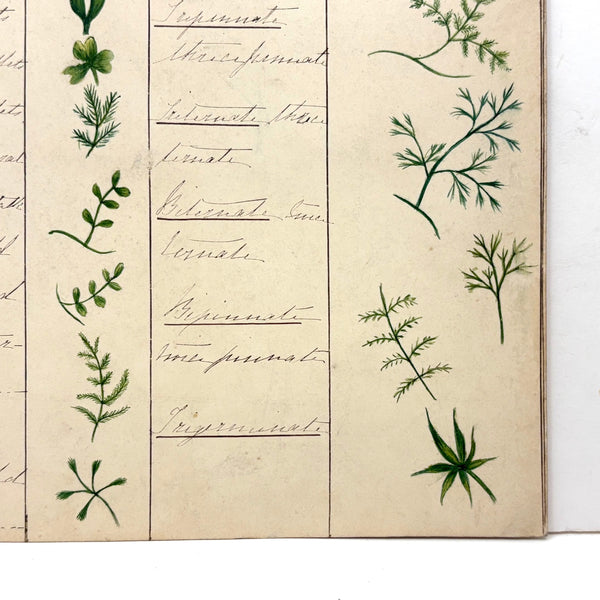 lets
Tripinnate
thrice pinnate
lets
Triternate thrice
ternate
Biternate twice
ternate
Bipinnate
twice pinnate
Trigeminate